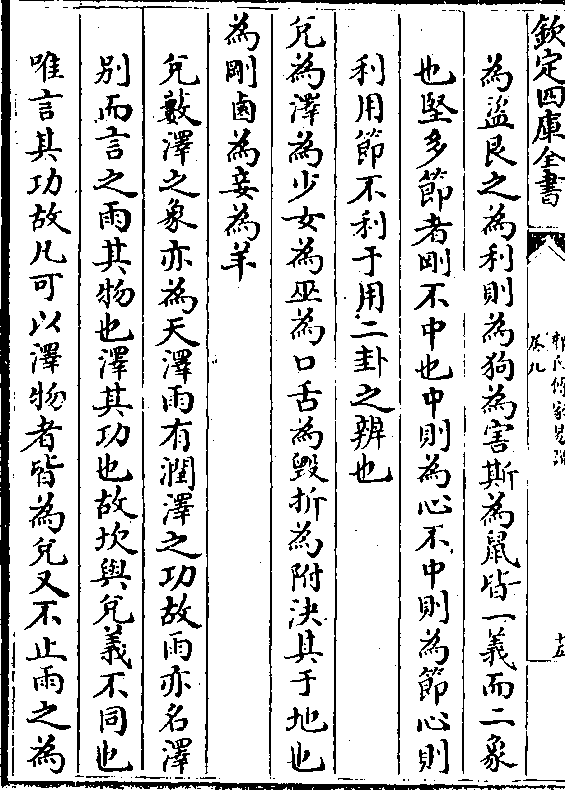 欽定四庫全書
郭氏傳家易說
卷九
十五
為盜艮之為利則為狗為害斯為鼠皆一義而二象
也堅多節者剛不中也中則為心不中則為節心則
利用節不利于用二卦之辨也
兌為澤為少女為巫為口舌為毀折為附決其于地也
為剛鹵為妾為羊
兌藪澤之象亦為天澤雨有潤澤之功故雨亦名澤
别而言之雨其物也澤其功也故坎與兌義不同也
唯言其功故凡可以澤物者皆為兌又不止雨之為